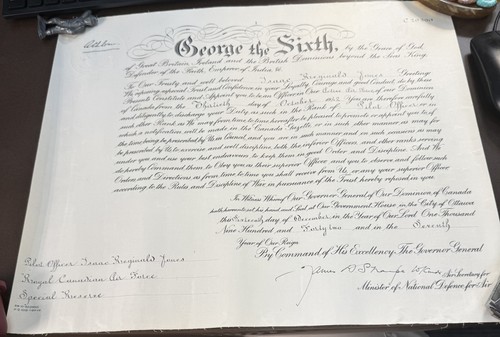 George the Sixth, by the Grace of God,
of Great Britain, Ireland and the British Dominions beyond the Seas King,
Defender of the Faith, Emperor of India, &c.
To Our Trusty and well beloved Isaac Reginald Jones Greeting
We reposing especial Trust and Confidence in your Loyalty, Courage and good Conduct, do by these
Presents Constitute and Appoint you to be an Officer in Our Active Air Force of our Dominion
of Canada from the Thirtieth day of October 1942. You are therefore carefully
and diligently to discharge your Duty as such in the Rank of Pilot Officer or in
such other Rank as We may from time to time hereafter be pleased to promote or appoint you to, of
which a notification will be made in the Canada Gazette or in such other manner as may for
the time being be prescribed by Us in Council, and you are in such manner and on such occasions as may
be prescribed by Us to exercise and well discipline both the inferior Officers and other ranks serving
under you and use your best endeavours to keep them in good Order and Discipline. And We
do hereby Command them to Obey you as their superior Officer, and you to observe and follow such
Orders and Directions as from time to time you shall receive from Us, or any your superior Officer
according to the Rules and Discipline of War in pursuance of the Trust hereby reposed in you.
In Witness Whereof Our Governor General of Our Dominion of Canada
hath hereunto set his hand and Seal at Our Government House in the City of Ottawa
this day of December in the Year of Our Lord One Thousand
Nine Hundred and Forty two and in the Seventh
Year of Our Reign
By Command of His Excellency The Governor General
Pilot Officer Isaac Reginald Jones
Royal Canadian Air Force
Special Reserve
for Minister of National Defence for Air